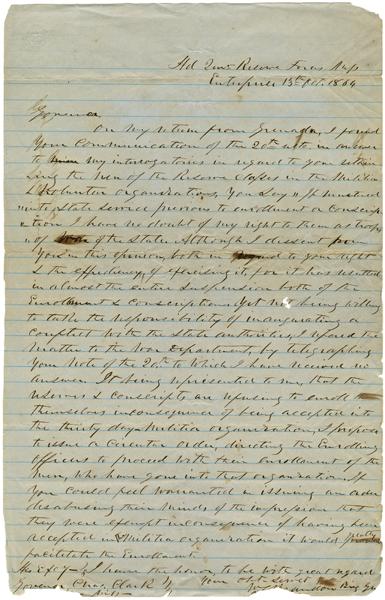 Hd Qurs Reserve Forces Miss
Enterprise 13th Oct. 1864
Governor
On my return from Grenada, I found
Your Communication of the 20th ult. in answer
to my interrogatories in regard to your retain
ing the men of the Reserve Classes in the Militia
& Volunteer organizations, You Say "If mustered
"into State Service previous to enrollment or Conscrip
"tion I have no doubt of my right to them as troops
"of the State. Although I dissent from
You in this opinion, both in to your right
& the efficiency of exercising it, for it has resulted
in almost the entire Suspension both of the
Enrollment & Conscription, Yet not being willing
to take the responsibility of inaugurating a
conflict with the State authorities, I refered the
matter to the War Department, by telegraphing
Your Note of the 20th to which I have received no
answer. It being represented to me, that the
reserves & Conscripts are refusing to enroll
themselves inconsequence of being accepted into
the thirty days Militia organization, I propose
to issue a Circular Order, directing the Enrolling
officers to proceed with their enrollment of the
men, who have gone into that organization. If
You could feel warranted in issuing an order
disabusing their minds of the impression that
they were exempt inconsequence of having been
accepted in Militia organization it would greatly
facilitate the Enrollment.
His Excy I have the honor, to be with great regard
Governor Chas. Clark Your Obt Servt
Brig Gn